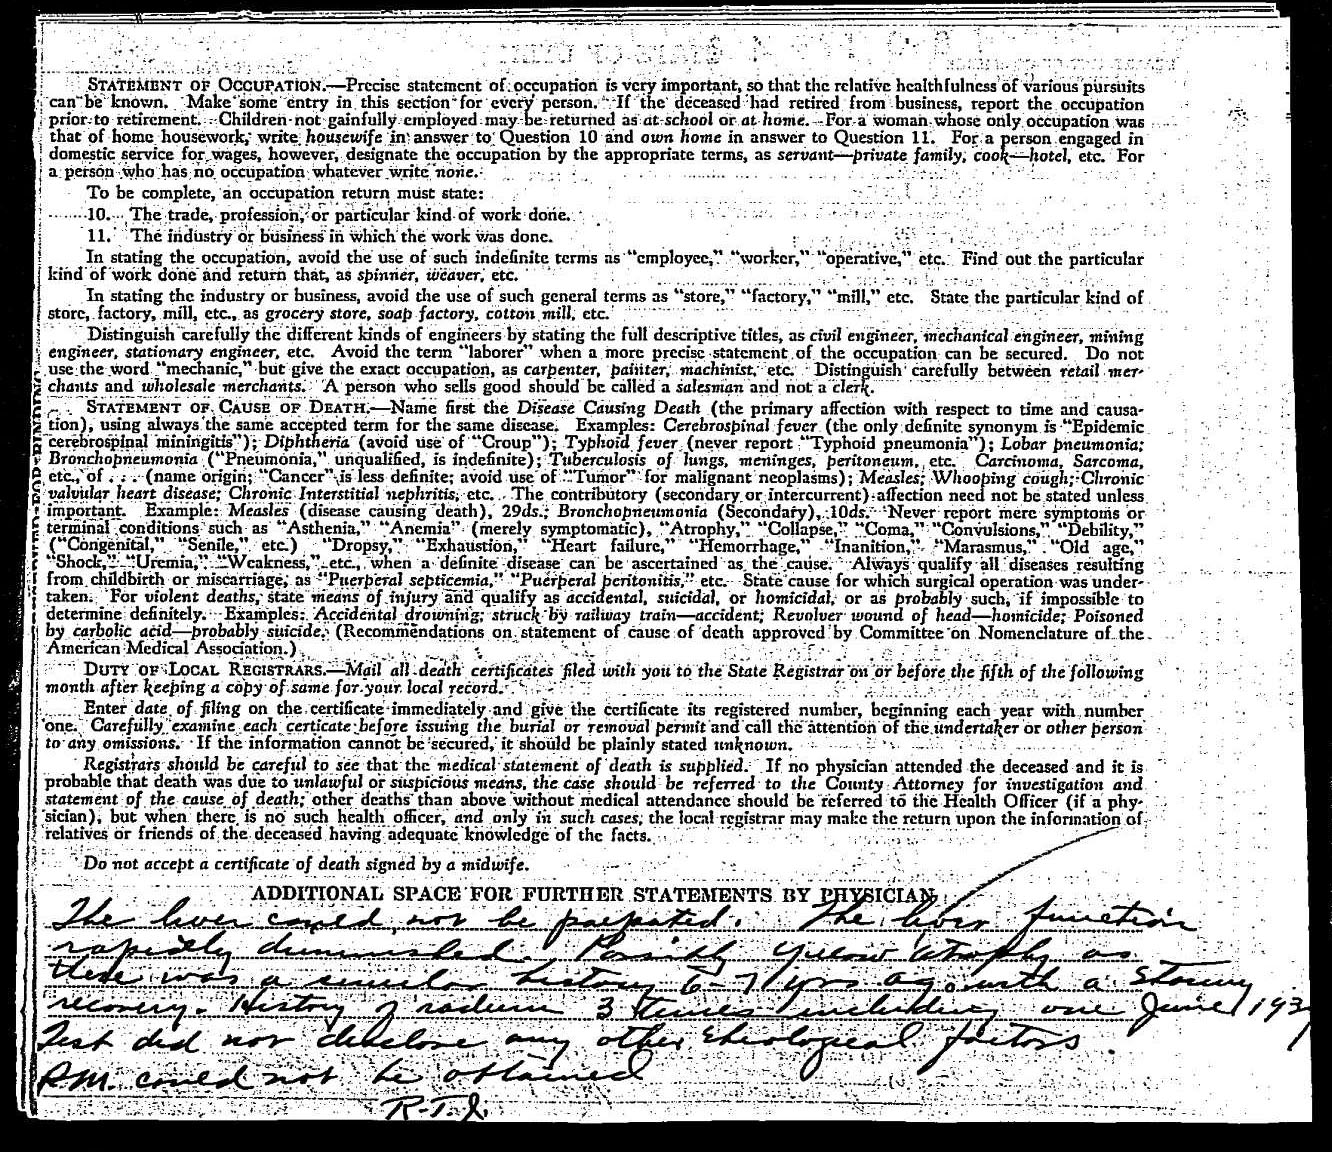 STATEMENT OF OCCUPATION.—Precise statement of occupation is very important, so that the relative healthfulness of various pursuits
can be known. Make some entry in this section for every person. If the deceased had retired from business, report the occupation
prior to retirement. Children not gainfully employed may be returned as at school or at home. For a woman whose only occupation was
that of home housework, write housewife in answer to Question 10 and own home in answer to Question 11. For a person engaged in
domestic service for wages, however, designate the occupation by the appropriate terms, as servant—private family, cook—hotel, etc. For
a person who has no occupation whatever write none.
To be complete, an occupation return must state:
10. The trade, profession, or particular kind of work done.
11. The industry or business in which the work was done.
In stating the occupation, avoid the use of such indefinite terms as "employee," "worker," "operative," etc. Find out the particular
kind of work done and return that, as spinner, weaver, etc.
In stating the industry or business, avoid the use of such general terms as "store," "factory," "mill," etc. State the particular kind of
store, factory, mill, etc., as grocery store, soap factory, cotton mill, etc.
Distinguish carefully the different kinds of engineers by stating the full descriptive titles, as civil engineer, mechanical engineer, mining
engineer, stationary engineer, etc. Avoid the term "laborer" when a more precise statement of the occupation can be secured. Do not
use the word "mechanic," but give the exact occupation, as carpenter, painter, machinist, etc. Distinguish carefully between retail mer-
chants and wholesale merchants. A person who sells good should be called a salesman and not a clerk.
STATEMENT OF CAUSE OF DEATH.—Name first the Disease Causing Death (the primary affection with respect to time and causa-
tion), using always the same accepted term for the same disease. Examples: Cerebrospinal fever (the only definite synonym is "Epidemic
cerebrospinal miningitis"); Diphtheria (avoid use of "Croup"); Typhoid fever (never report "Typhoid pneumonia"); Lobar pneumonia;
Bronchopneumonia ("Pneumonia," unqualified, is indefinite); Tuberculosis of lungs, meninges, peritoneum, etc. Carcinoma, Sarcoma,
etc., of . . . (name origin; "Cancer" is less definite; avoid use of "Tumor" for malignant neoplasms); Measles; Whooping cough; Chronic
valvular heart disease; Chronic Interstitial nephritis, etc. The contributory (secondary or intercurrent) affection need not be stated unless
important. Example: Measles (disease causing death), 29ds.; Bronchopneumonia (Secondary), 10ds. Never report mere symptoms or
terminal conditions such as "Asthenia," "Anemia" (merely symptomatic), "Atrophy," "Collapse," "Coma," "Convulsions," "Debility,"
("Congenital," "Senile," etc.) "Dropsy," "Exhaustion," "Heart failure," "Hemorrhage," "Inanition," "Marasmus," "Old age,"
"Shock," "Uremia," "Weakness," etc., when a definite disease can be ascertained as the cause. Always qualify all diseases resulting
from childbirth or miscarriage, as "Puerperal septicemia," "Puerperal peritonitis," etc. State cause for which surgical operation was under-
taken. For violent deaths, state means of injury and qualify as accidental, suicidal, or homicidal, or as probably such, if impossible to
determine definitely. Examples: Accidental drowning; struck by railway train—accident; Revolver wound of head—homicide; Poisoned
by carbolic acid—probably suicide. (Recommendations on statement of cause of death approved by Committee on Nomenclature of the
American Medical Association.)
DUTY OF LOCAL REGISTRARS.—Mail all death certificates filed with you to the State Registrar on or before the fifth of the following
month after keeping a copy of same for your local record.
Enter date of filing on the certificate immediately and give the certificate its registered number, beginning each year with number
one. Carefully examine each certicate before issuing the burial or removal permit and call the attention of the undertaker or other person
to any omissions. If the information cannot be secured, it should be plainly stated unknown.
Registrars should be careful to see that the medical statement of death is supplied. If no physician attended the deceased and it is
probable that death was due to unlawful or suspicious means, the case should be referred to the County Attorney for investigation and
statement of the cause of death; other deaths than above without medical attendance should be referred to the Health Officer (if a phy-
sician), but when there is no such health officer, and only in such cases, the local registrar may make the return upon the information of
relatives or friends of the deceased having adequate knowledge of the facts.
Do not accept a certificate of death signed by a midwife.
ADDITIONAL SPACE FOR FURTHER STATEMENTS BY PHYSICIAN
The liver could not be palpated. The liver function
rapidly diminished. Possibly yellow atrophy as
there was a similar history 6-7 yrs ago with a stormy
recovery. History of radium 3 times including one June 193
Test did not disclose any other etiological factors.
P.M. could not be obtained
R.T.J.